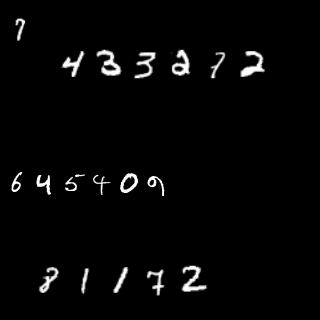 7
433272
645409
81172